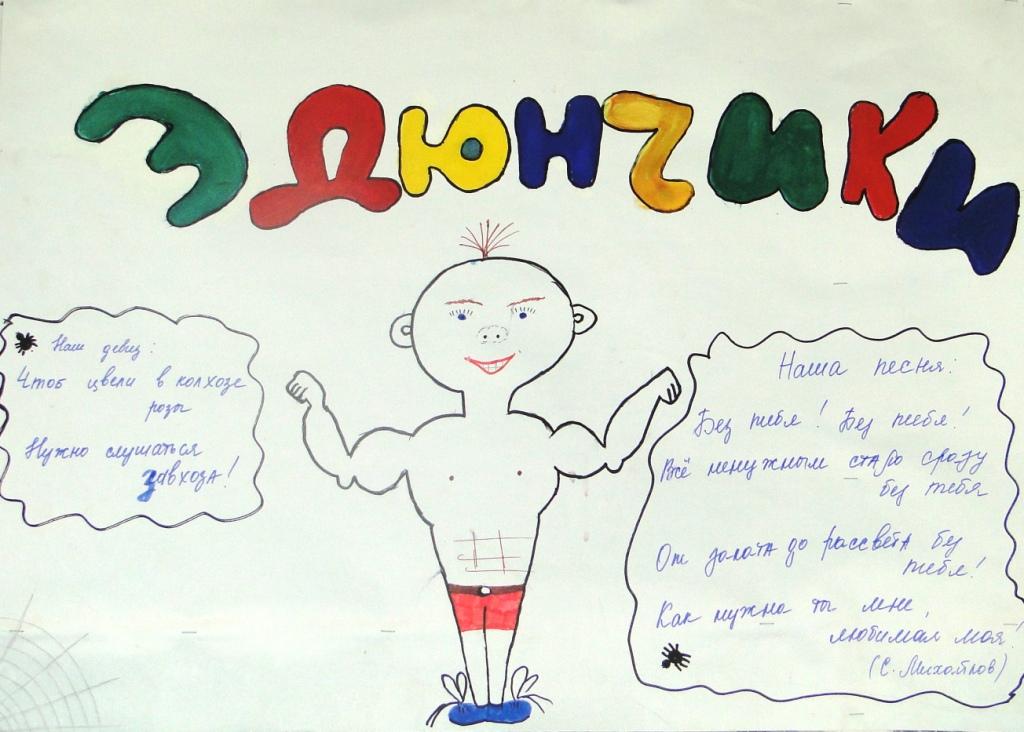 ЭДЮНЧИКИ
Наш девиз:
Чтоб цвели в колхозе
розы
Нужно слушаться
завхоза!
Наша песня:
Без тебя! Без тебя!
Всё ненужным стало сразу
без тебя
От заката до рассвета без
тебя!
Как нужна ты мне,
любимая моя!
(С. Михайлов)